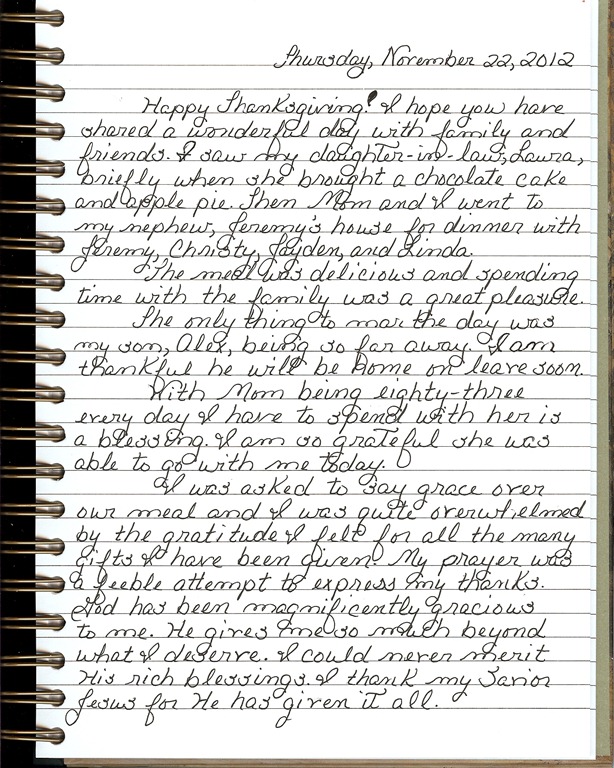 Thursday, November 22, 2012
Happy Thanksgiving! I hope you have
shared a wonderful day with family and
friends. I saw my daughter-in-law, Laura,
briefly when she brought a chocolate cake
and apple pie. Then Mom and I went to
my nephew, Jeremy's house for dinner with
Jeremy, Christy, Jayden, and Linda.
The meal was delicious and spending
time with the family was a great pleasure.
The only thing to mar the day was
my son, Alex, being so far away. I am
thankful he will be home on leave soon.
With Mom being eighty-three
every day I have to spend with her is
a blessing. I am so grateful she was
able to go with me today.
I was asked to say grace over
our meal and I was quite overwhelmed
by the gratitude I felt for all the many
gifts I have been given. My prayer was
a feeble attempt to express my thanks.
God has been magnificently gracious
to me. He gives me so much beyond
what I deserve. I could never merit
His rich blessings. I thank my Savior
Jesus for He has given it all.